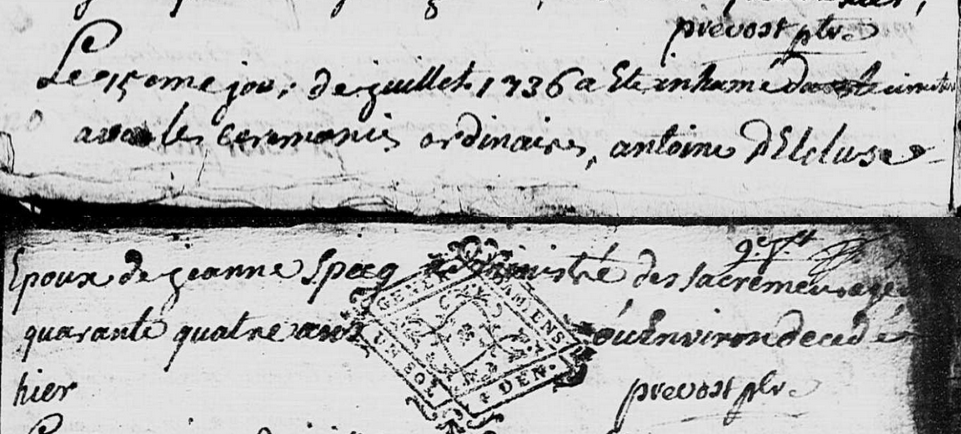 prevost ptre
Le 15eme jour de juillet 1736 a Ete inhumé dans le cimetiere
avec les ceremonies ordinaires, antoine dElcluse
Epoux de jeanne Speeg administré des sacremens agé
quarante quatre ans ou Environ decedé
GENER DAMIENS
UN SOL 4 DEN.
hier
prevost ptre